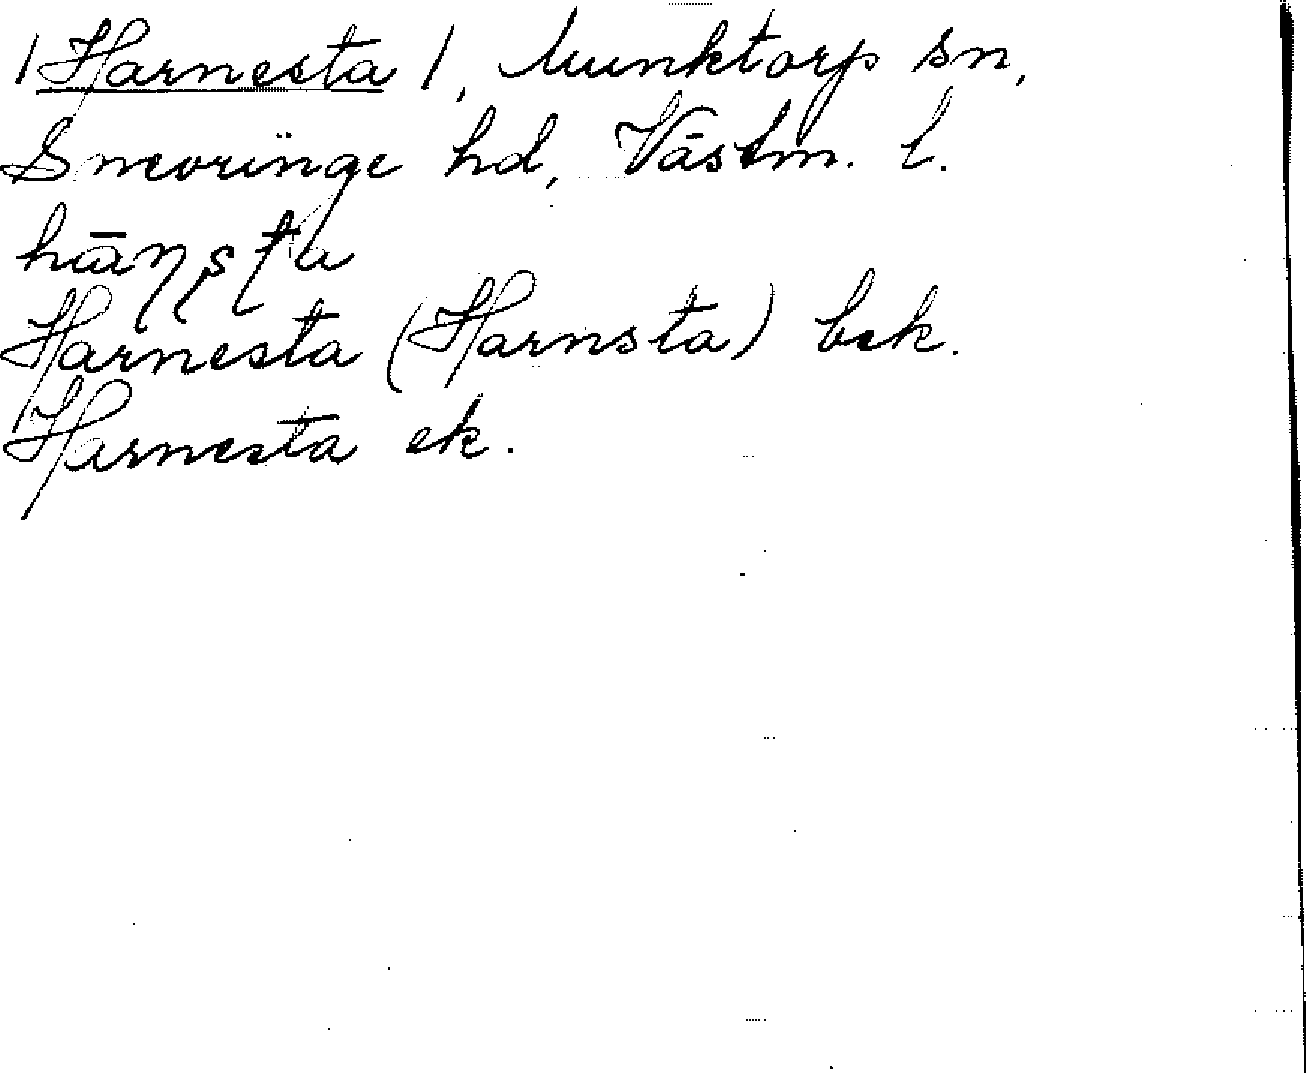 /Harnesta/, Munktorp sn,
Snevringe hd, Västm. l.
hāṇṣṭa
Harnesta (Harnsta) bek.
Harnesta ek.